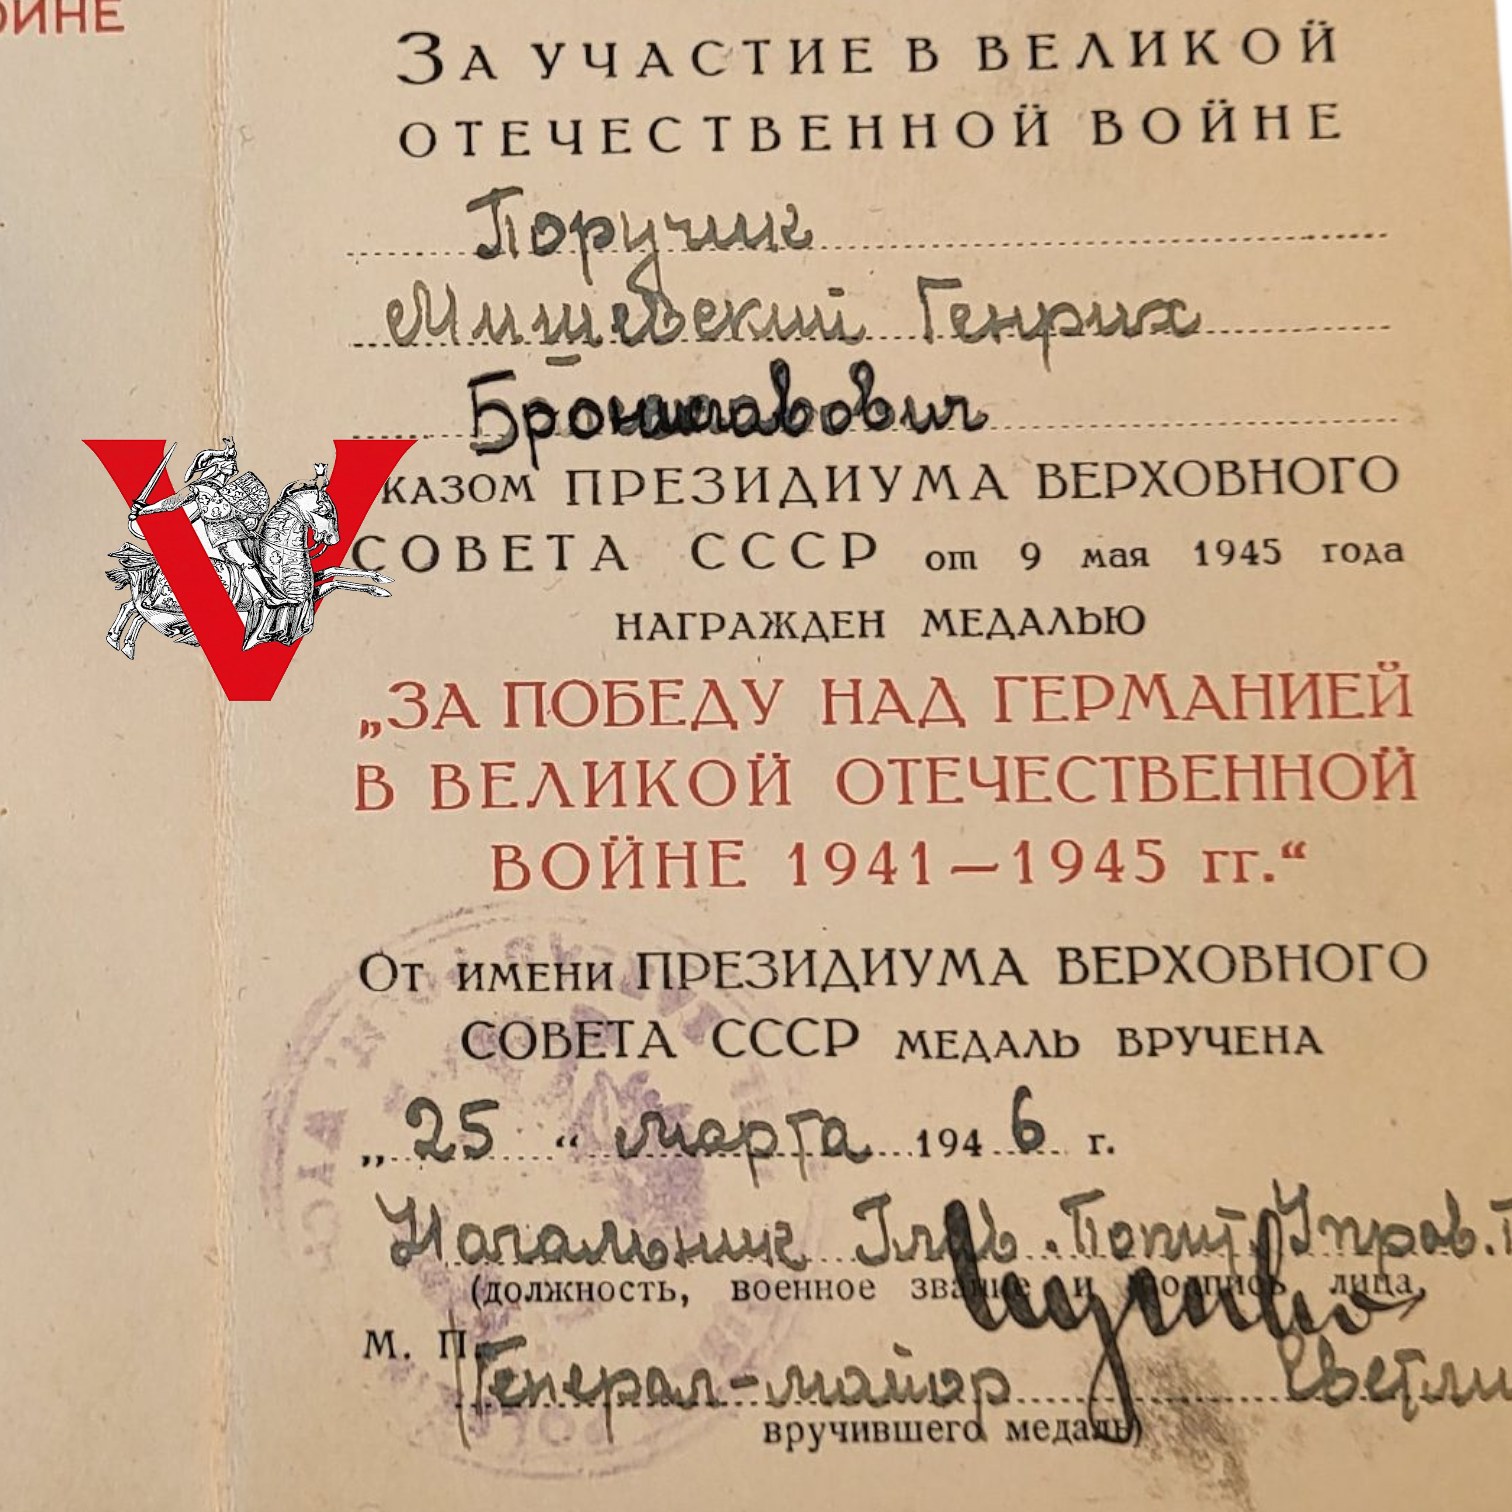 ОЙНЕ
За участие в великой
отечественной войне
Поручик
Мишевский Генрих
Брониславович
казом ПРЕЗИДИУМА ВЕРХОВНОГО
СОВЕТА СССР от 9 мая 1945 года
НАГРАЖДЕН МЕДАЛЬЮ
„ЗА ПОБЕДУ НАД ГЕРМАНИЕЙ
В ВЕЛИКОЙ ОТЕЧЕСТВЕННОЙ
ВОЙНЕ 1941—1945 гг.“
От имени ПРЕЗИДИУМА ВЕРХОВНОГО
СОВЕТА СССР МЕДАЛЬ ВРУЧЕНА
„25“ марта 1946 г.
Начальник Глав. Полит. Управ.
(должность, военное звание и подпись лица,
М. П.
Генерал-майор
вручившего медаль)